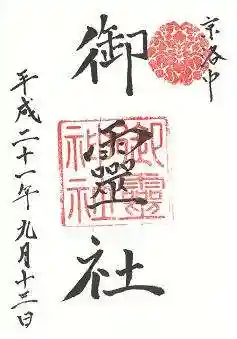 京洛中
御靈社
御靈社
平成二十一年九月十三日